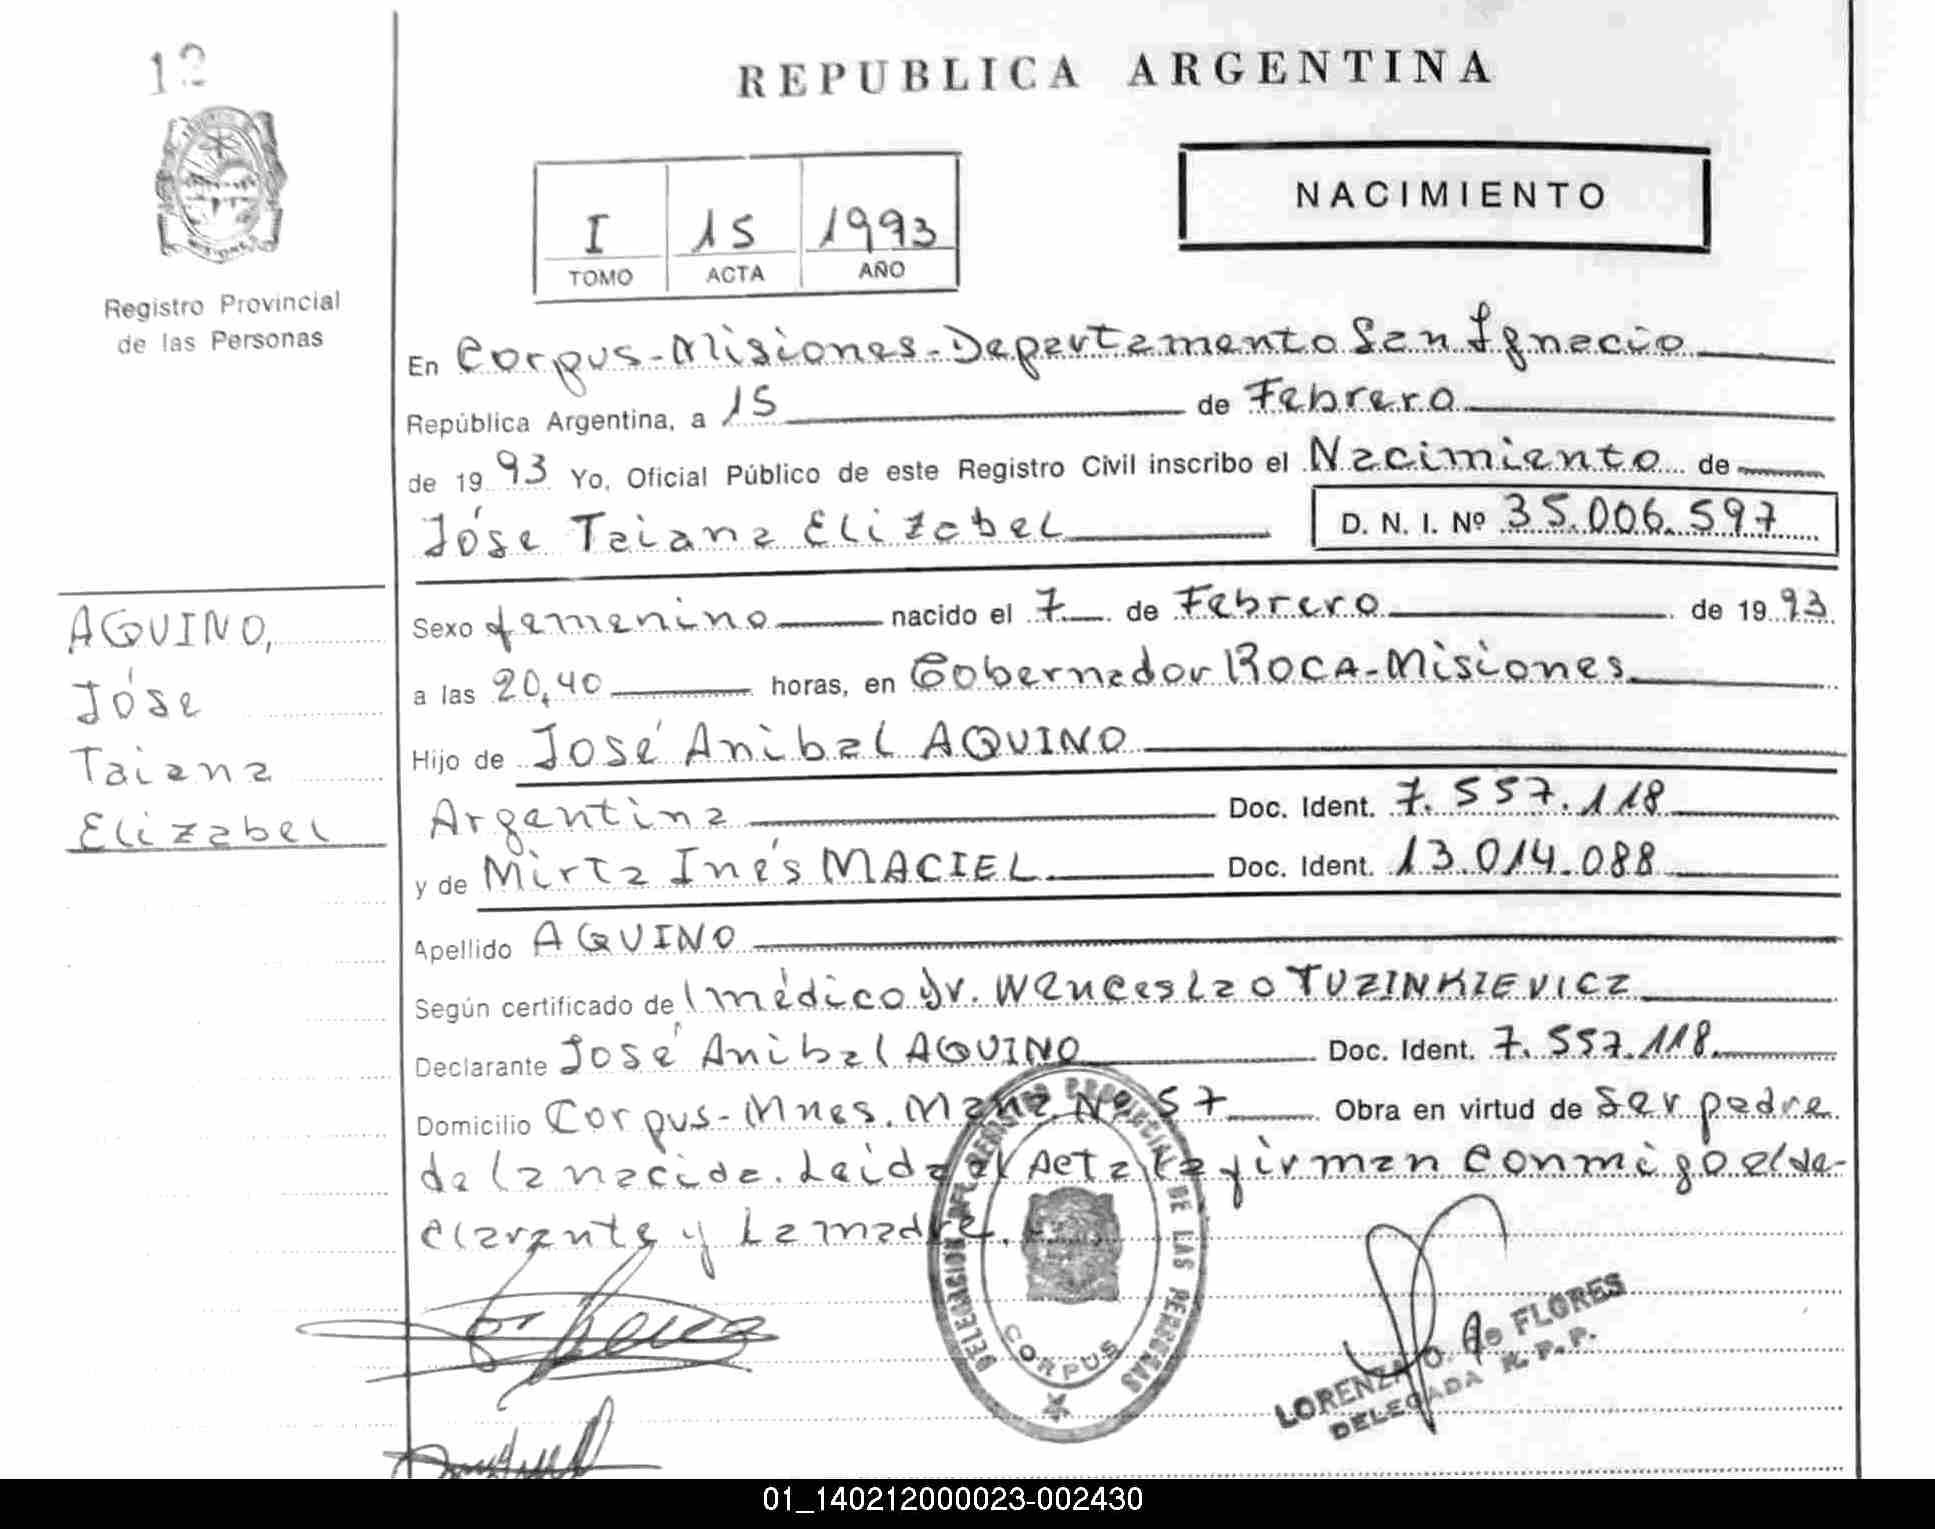 12
REPUBLICA ARGENTINA
NACIMIENTO
I 15 1993
TOMO ACTA AÑO
Registro Provincial
de las Personas
En Corpus-Misiones-Departamento San Ignacio
República Argentina, a 15 de Febrero
de 1993 Yo, Oficial Público de este Registro Civil inscribo el Nacimiento de
Jóse Taiana Elizabel D. N. I. Nº 35.006.597
AQUINO,
Jóse
Taiana
Elizabel
Sexo femenino nacido el 7 de Febrero de 1993
a las 20,40 horas, en Gobernador ROCA-Misiones
Hijo de José Anibal AQUINO
Argentina Doc. Ident. 7.557.118
y de Mirta Inés MACIEL Doc. Ident. 13.014.088
Apellido AQUINO
Según certificado del médico Dr. Wenceslao TUZINKIEVICZ
Declarante José Anibal AQUINO Doc. Ident. 7.557.118
Domicilio Corpus-Mnes. Manz Nº 57 Obra en virtud de Ser padre
de la nacida. Leida el Acta la firman conmigo el de-
clarante y La madre.
DELEGACION DEL REGISTRO PROVINCIAL DE LAS PERSONAS
CORPUS
LORENZA O. de FLORES
DELEGADA R. P. P.
01_140212000023-002430